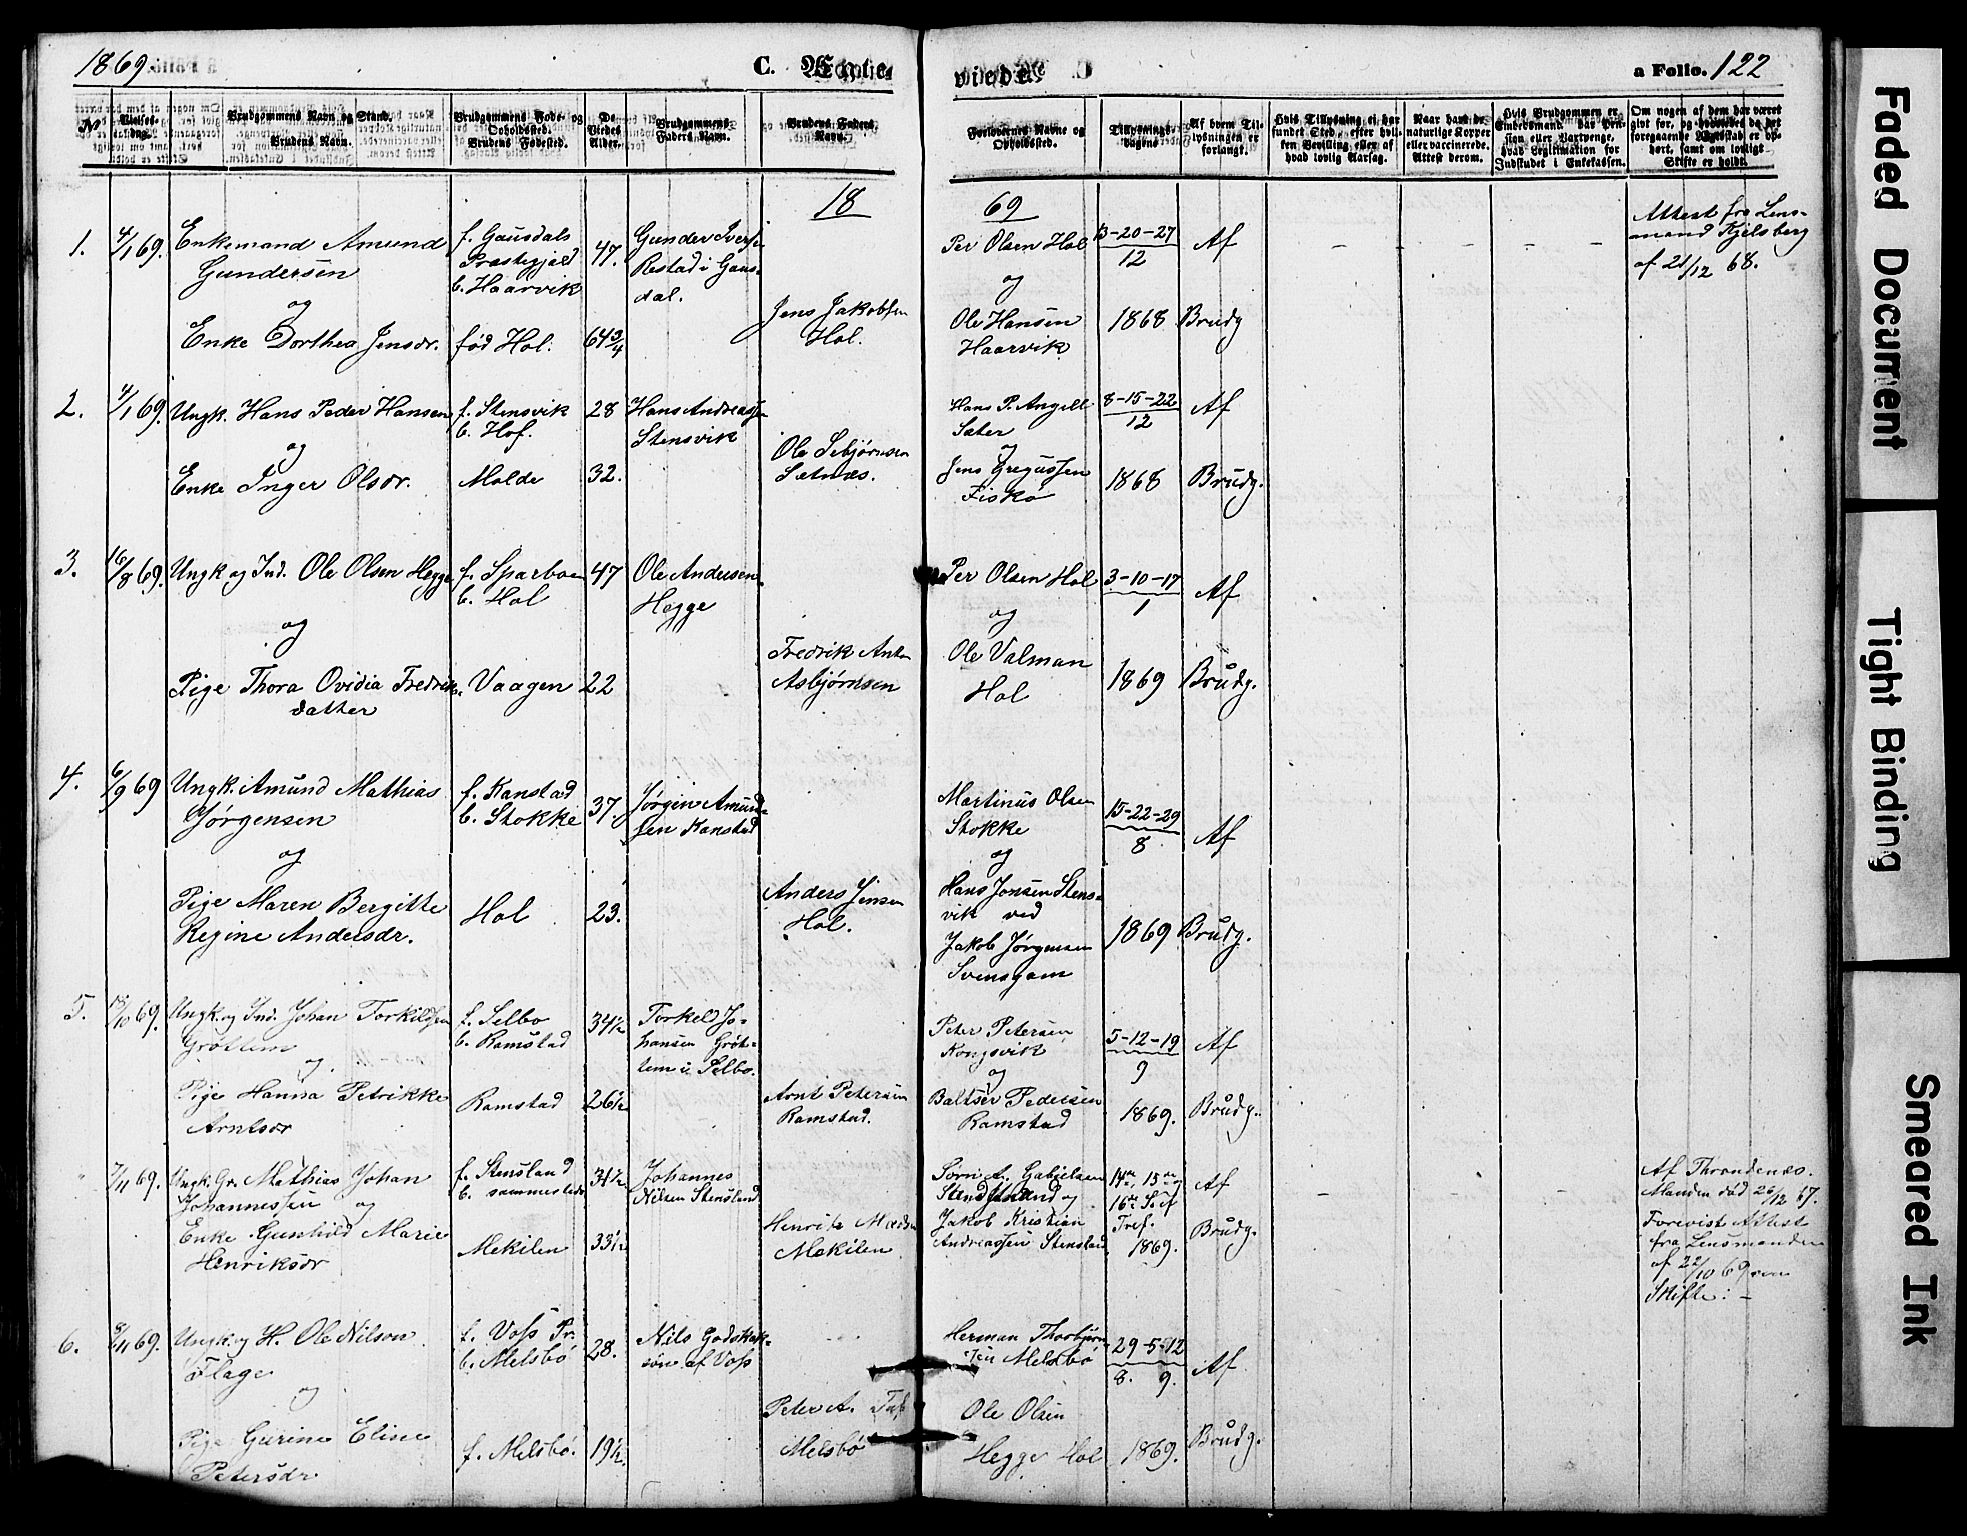 1869.
C. Egte-
viede.
a Folio. 122
No
Vielses-
dag.
Brudgommens Navn og Stand.
Brudens Navn.
Brudgommens Føde- og
Opholdssted.
Brudens Fødested.
De
Viedes
Alder.
Brudgommens
Faders Navn.
Brudens Faders
Navn.
Forlovernes Navne og
Opholdssted.
Tillysnings-
dagene
Af hvem Til-
lysningen er
forlangt.
Hvis Tillysning ej har
fundet Sted, efter hvil-
ken Bevilling eller af
hvad lovlig Aarsag.
Naar havt de
naturlige Kopper
eller vaccinerede.
Attest derom.
Hvis Brudgommen er
Embedsmand, har Pen-
sion eller Vartpenge,
hvad Legitimation for
Indskudet i Enkekassen.
Om nogen af dem har været
gift før, og hvorledes da det
foregaaende Ægteskab er op-
hørt, samt om lovligt
Skifte er holdt.
18
69
1. 4/1 69. Enkemand Amund
Gundersen
og
Enke Dorthea Jensdr.
f. Gausdals
Præstegjæld
b. Haarvik
fød Hol.
47.
64 3/4
Gunder Iverse
Restad i Gaus-
dal.
Jens Jakobsen
Hol.
Per Olsen Hol
og
Ole Hansen
Haarvik
13-20-27
12
1868
Af
Brudg
Attest fra Lens-
mand Kjelsberg
af 21/12 68.
2. 4/1 69. Ungk. Hans Peder Hansen
og
Enke Inger Olsdr.
f. Stensvik
b. Hof.
Molde
28
32.
Hans Andreassen
Stensvik
Ole Sebjørnsen
Sætnæs.
Hans P. Angell
Sæter
og
Jens Gregussen
Fiskø
8-15-22
12
1868
Af
Brudg.
3. 16/8 69. Ungk og Ind. Ole Olsen Hegge
og
Pige Thora Ovidia Fredriks-
datter
f. Sparboen
b. Hol
Vaagen
47
22
Ole Andersen
Hegge
Fredrik Anton
Asbjørnsen
Per Olsen Hol
og
Ole Valman
Hol
3-10-17
1
1869
Af
Brudg.
4. 6/9 69 Ungk. Amund Mathias
Jørgensen
og
Pige Maren Bergitte
Regine Andersdr.
f. Kanstad
b. Stokke
Hol
37.
23.
Jørgen Amund-
sen Kanstad
Anders Jensen
Hol.
Martinus Olsen
Stokke
og
Hans Jonsen Stens-
vik ved
Jakob Jørgensen
Svensgam
15-22-29
8
1869
Af
Brudg.
5. /10 69. Ungk. og Ind. Johan Torkildsen
Grøttem
og
Pige Hanna Petrikke
Arntsdr
f. Selbo
b. Ramstad
Ramstad
34 1/2
26 1/2
Torkel Jo-
hansen Grøt-
tem i Selbo.
Arnt Petersen
Ramstad.
Peter Petersen
Kongsvik
og
Baltser Pedersen
Ramstad
5-12-19
9
1869.
Af
Brudg.
7/11 69. Ungk. Gr. Mathias Johan
Johannessen og
Enke Gunhild Marie
Henriksdr
f. Stensland
b. sammesteds
Mekilen
31 1/2
33 1/2
Johannes
Nilsen Stensland
Henrik
Mekilen
Søren A. Gabrielsen
og
Jakob Kristian
Andreassen Stensland
14de, 15de og
16de S. ef
Tref.
1869.
Af
Brudg.
Af Throndenæs.
Manden død 26/12 67.
Forevist Attest
fra Lensmanden
af 22/10 69 om
Skifte: -
6. 8/11 69. Ungk. og H. Ole Nilson
Flage
og
Pige Gurine Eline
Petersdr
f. Voss Pr.
b. Melsbø
f. Melsbø.
28.
19 1/2
Nils Godskalk-
sön af Voss
Peter A.
Melsbø
Herman Thorbjørn-
sen Melsbø
Ole Olsen
Hegge Hol
29-5-12
8. 9.
1869.
Af
Brudg.
Faded Document
Tight Binding
Smeared Ink